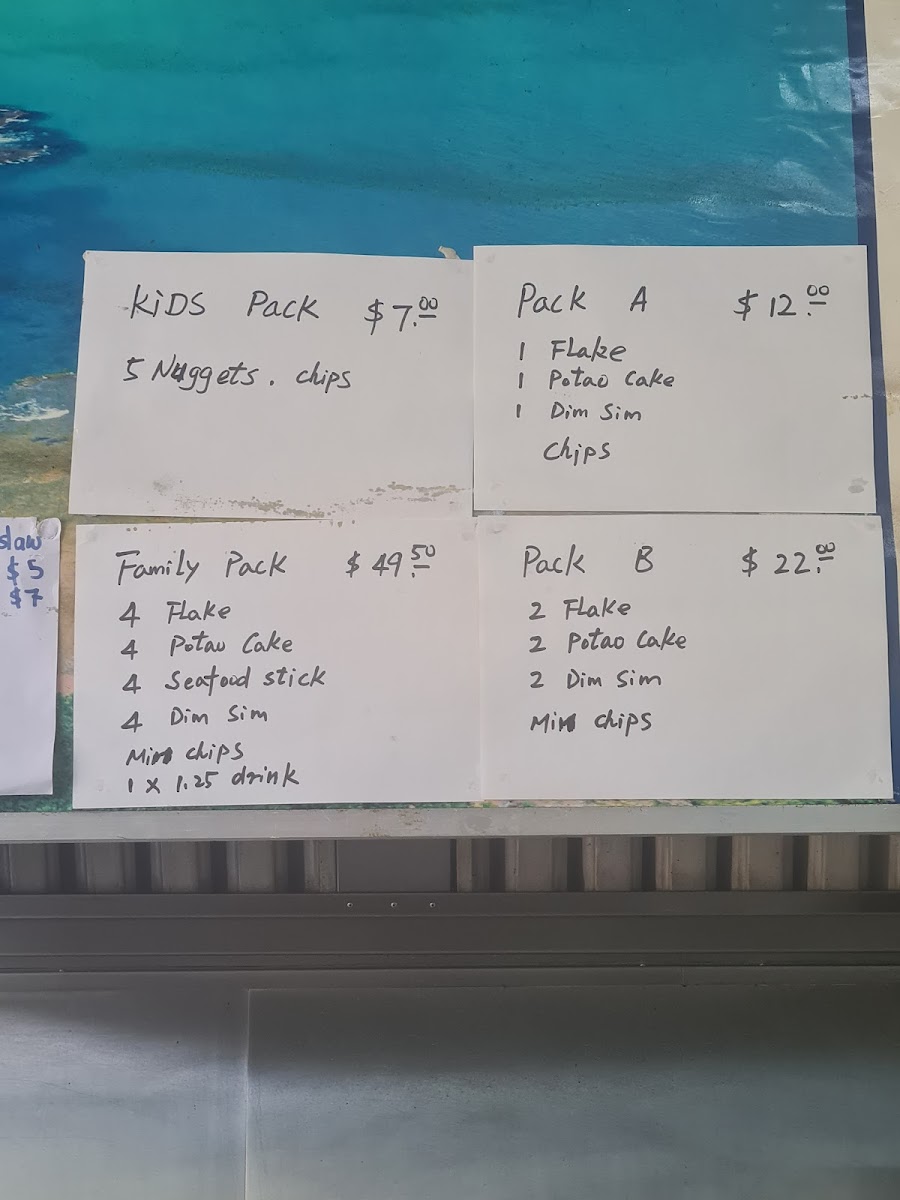 KiDS Pack $7.00
5 Nuggets. chips
Pack A $12.00
1 Flake
1 Potao Cake
1 Dim Sim
Chips
slaw
$5
$7
Family Pack $49.50
4 Flake
4 Potao Cake
4 Seafood stick
4 Dim Sim
Min chips
1 x 1.25 drink
Pack B $22.00
2 Flake
2 Potao Cake
2 Dim Sim
Min chips